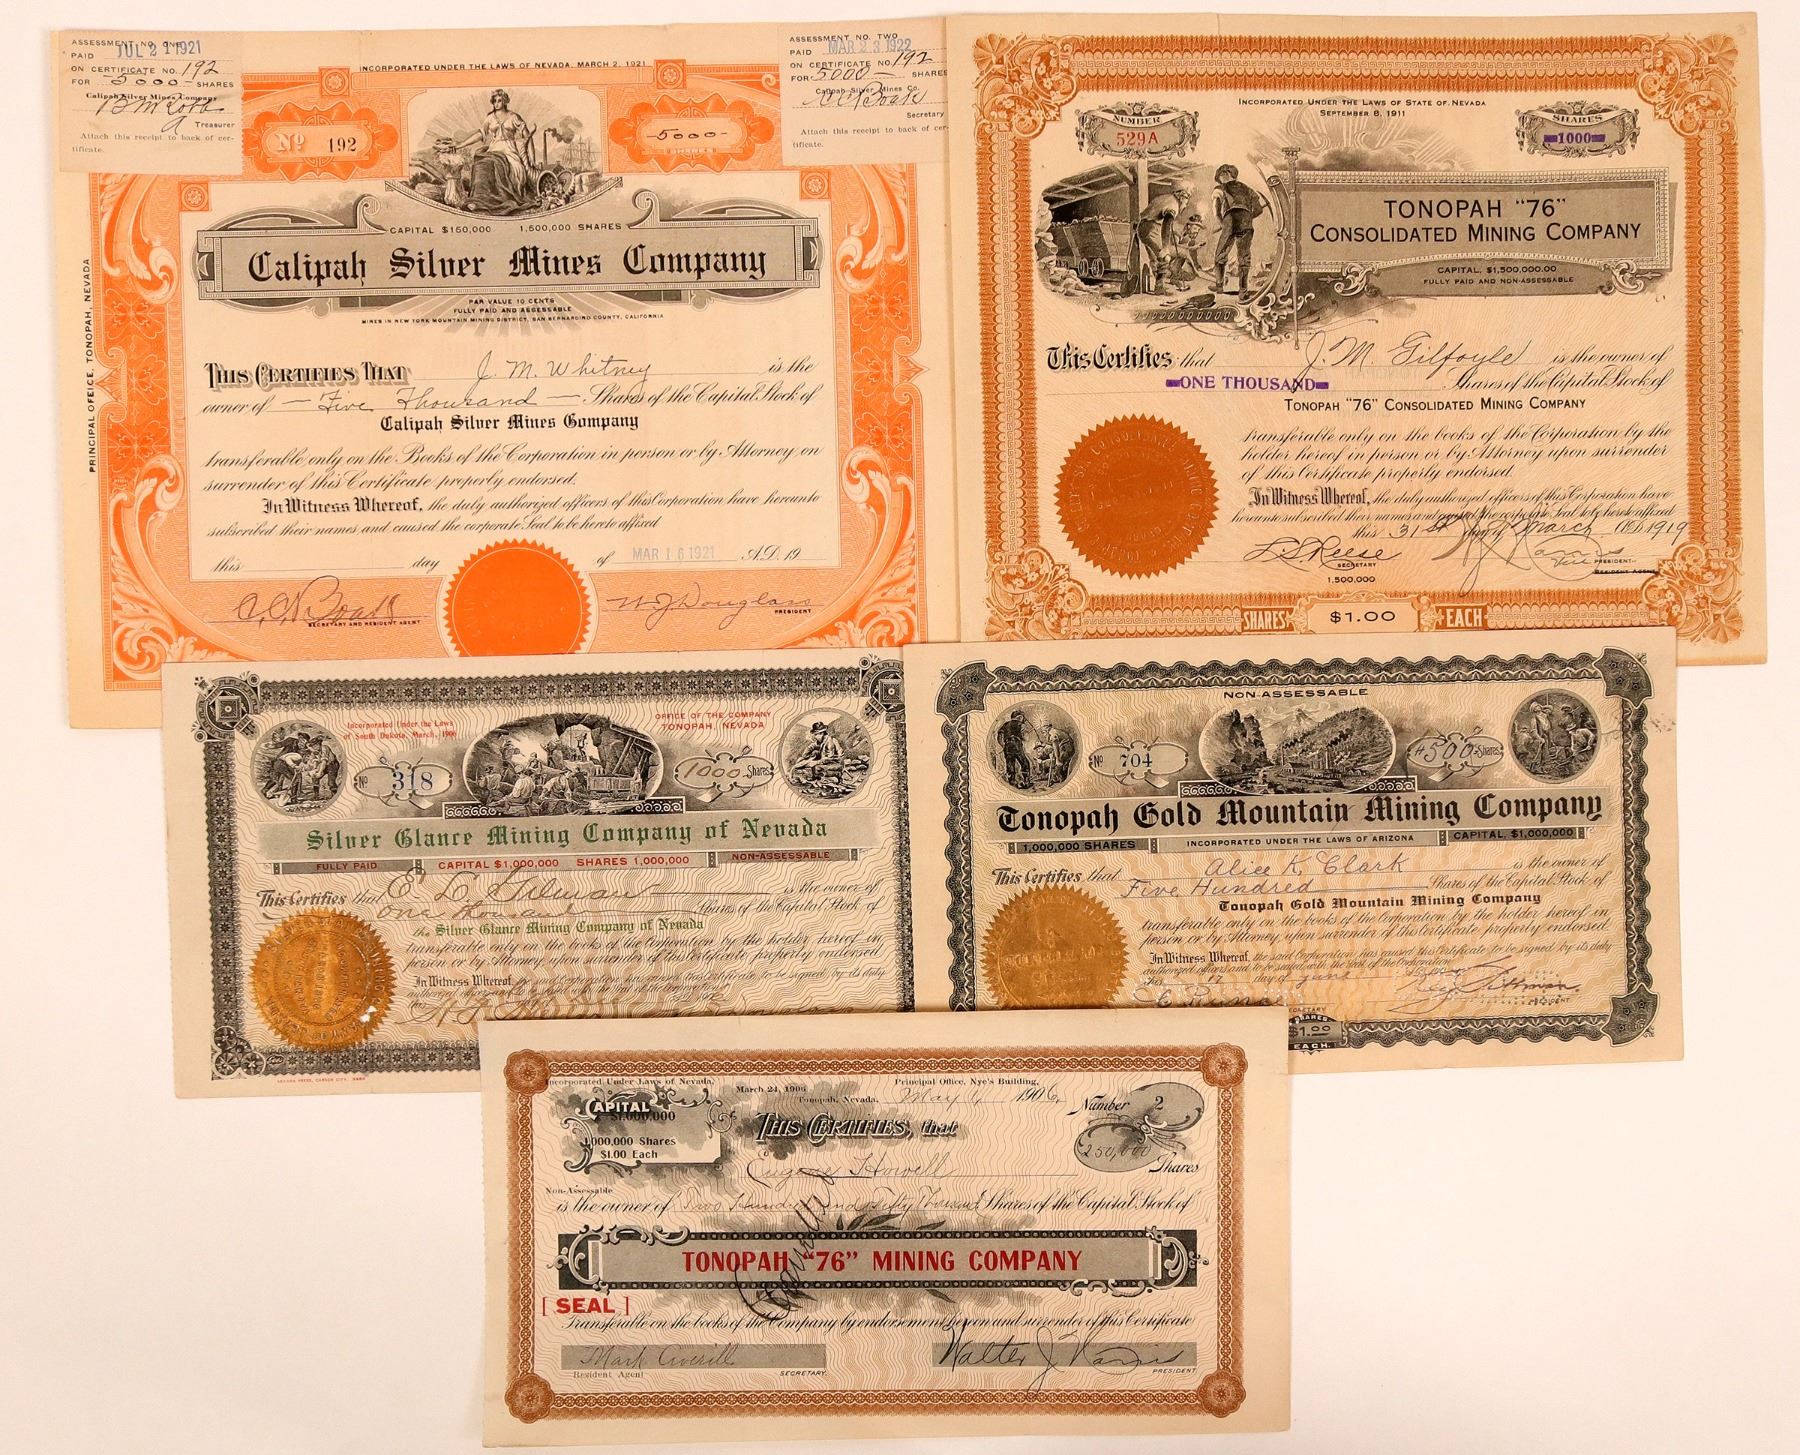 ASSESSMENT NO. ONE
PAID JUL 21 1921
ON CERTIFICATE NO. 192
FOR 5000 SHARES
Calipah Silver Mines Company
Treasurer
Attach this receipt to back of cer-
tificate.
ASSESSMENT NO. TWO
PAID MAR 23 1922
ON CERTIFICATE NO. 192
FOR 5000 SHARES
Calipah Silver Mines Co.
Secretary
Attach this receipt to back of cer-
tificate.
INCORPORATED UNDER THE LAWS OF NEVADA, MARCH 2, 1921
No 192
-5000-
CAPITAL $150,000 1,500,000 SHARES
Calipah Silver Mines Company
PAR VALUE 10 CENTS
FULLY PAID AND ASSESSABLE
MINES IN NEW YORK MOUNTAIN MINING DISTRICT, SAN BERNARDINO COUNTY, CALIFORNIA
PRINCIPAL OFFICE, TONOPAH, NEVADA
THIS CERTIFIES THAT J. M. Whitney is the
owner of - Five Thousand - Shares of the Capital Stock of
Calipah Silver Mines Company
transferable only on the Books of the Corporation in person or by Attorney on
surrender of this Certificate properly endorsed.
In Witness Whereof, the duly authorized officers of this Corporation have hereunto
subscribed their names and caused the corporate Seal to be hereto affixed
this day of MAR 16 1921 A.D. 19
W J Douglass
SECRETARY AND RESIDENT AGENT
PRESIDENT
INCORPORATED UNDER THE LAWS OF STATE OF NEVADA
SEPTEMBER 8, 1911
NUMBER
529A
SHARES
1000
TONOPAH "76"
CONSOLIDATED MINING COMPANY
CAPITAL, $1,500,000.00
FULLY PAID AND NON-ASSESSABLE
This Certifies that J. M. Gilfoyle is the owner of
ONE THOUSAND Shares of the Capital Stock of
TONOPAH "76" CONSOLIDATED MINING COMPANY
transferable only on the books of the Corporation by the
holder hereof in person or by Attorney upon surrender
of this Certificate properly endorsed.
In Witness Whereof, the duly authorized officers of this Corporation have
hereunto subscribed their names and caused the corporate Seal to be hereto affixed
this 31st day of March A.D. 1919
L S Reese
SECRETARY
Vice PRESIDENT
RESIDENT AGENT
1,500,000
SHARES $1.00 EACH
Incorporated Under the Laws
of South Dakota, March, 1906
OFFICE OF THE COMPANY
TONOPAH, NEVADA
No 318
1000 Shares
Silver Glance Mining Company of Nevada
FULLY PAID CAPITAL $1,000,000 SHARES 1,000,000 NON-ASSESSABLE
This Certifies that E L Gilman is the owner of
One thousand Shares of the Capital Stock of
the Silver Glance Mining Company of Nevada
transferable only on the books of the Corporation by the holder hereof in
person or by Attorney upon surrender of this Certificate properly endorsed
In Witness Whereof, the said Corporation has caused this Certificate to be signed by its duly
NEVADA PRESS, CARSON CITY
NON-ASSESSABLE
No 704
500 Shares
Tonopah Gold Mountain Mining Company
1,000,000 SHARES INCORPORATED UNDER THE LAWS OF ARIZONA CAPITAL, $1,000,000
This Certifies that Alice K. Clark is the owner of
Five Hundred Shares of the Capital Stock of
Tonopah Gold Mountain Mining Company
transferable only on the books of the Corporation by the holder hereof in
person or by Attorney upon surrender of this Certificate properly endorsed
In Witness Whereof, the said Corporation has caused this Certificate to be signed by its duly
authorized officers and to be sealed with the seal of the Corporation
this 17 day of June
Key Pittman
PRESIDENT
SHARES
$1.00
EACH.
Incorporated Under Laws of Nevada, March 24, 1906 Principal Office, Nye's Building,
Tonopah, Nevada, May 1, 1906 Number 2
CAPITAL
$1,000,000
1,000,000 Shares
$1.00 Each
THIS CERTIFIES, that
250,000 Shares
Eugene Howell
Non-Assessable
is the owner of Two Hundred and Fifty Thousand Shares of the Capital Stock of
TONOPAH "76" MINING COMPANY
[SEAL]
Cancelled
Transferable on the books of the Company by endorsement hereon and surrender of this Certificate
Mark Averill
Resident Agent SECRETARY.
Walter J. Harris
PRESIDENT